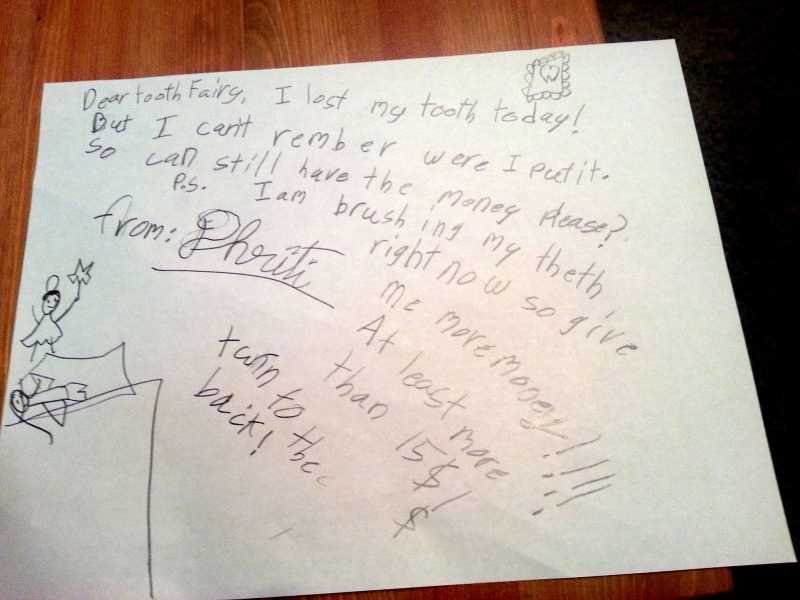 Dear tooth Fairy, I lost my tooth today!
But I can't rember were I put it.
So can still have the money please?
P.S. I am brushing my theth
right now so give
me more money!!!!
At least more
than 15$!
$
from: Dhriti
turn to the
back!